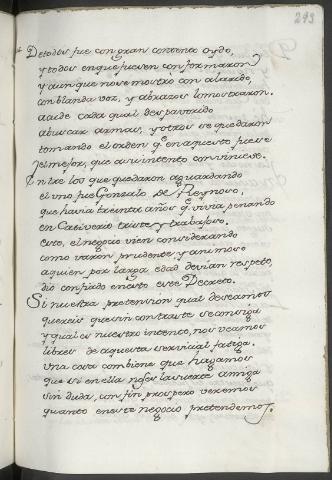 293
De todos fue con gran contento oydo,
y todos en que fuesen conformaron
y aunque no se mostro con alarido,
con blanda voz, y abrazos lo mostraron.
adde cada qual despavorido
a buscar armas, y otros se quedaron
tomando el orden q̃ en aquesto fuese
el mejor, que a su intento conviniese.
Entre los que quedaron aguardando
el uno fue Gonzalo de Reynoso,
que havia treinta años q̃ vivia penando
en Cativerio triste y trabajoso.
este, el negocio vien considerando
como varon prudente y animoso
a quien por larga edad devian respeto,
dio confiado en esto este Decreto.
Si nuestra pretension qual deseamos
quereis que sin contraste se consiga
y qual es nuestro intento, nos veamos
libres de aquesta servicial fatiga.
Una cosa combiene que hagamos
que si en ella nos es la suerte amiga
sin duda, con fin prospero veremos
quanto en este negocio pretendemos.